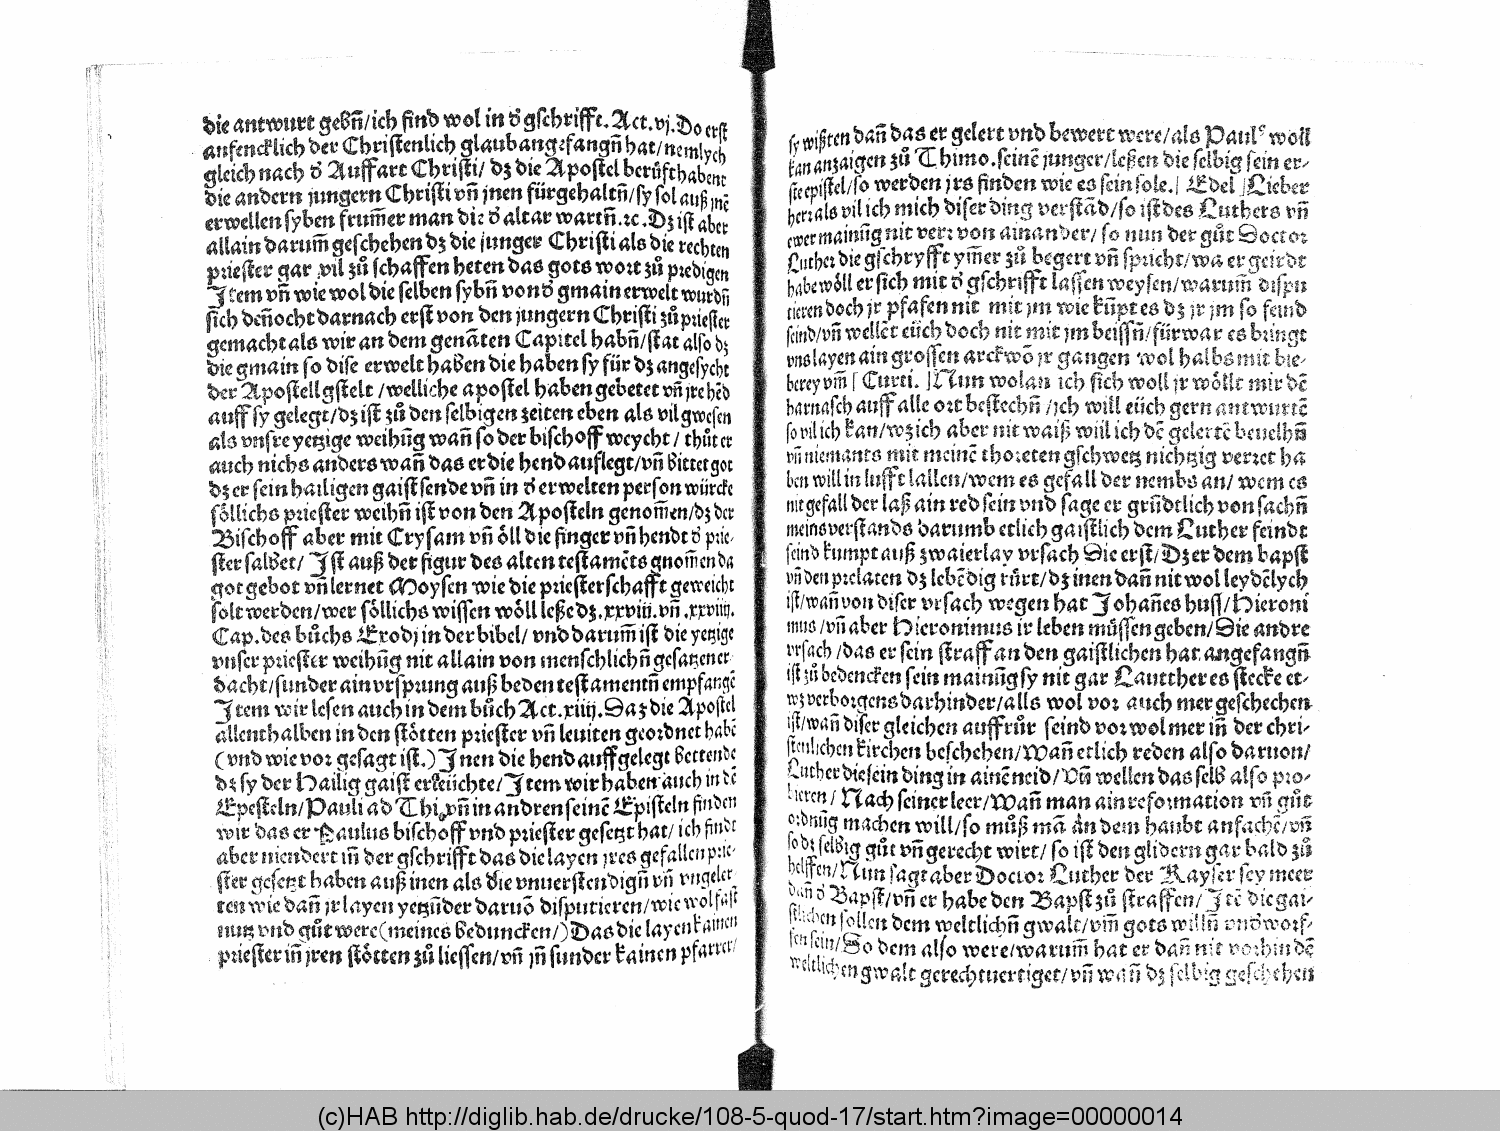 die antwurt gebñ/ich find wol in d̾ gschrifft. Act.vj. Do erst
anfencklich der Christenlich glaub angefangñ hat/nemlych
gleich nach d̾ Auffart Christi/ dz die Apostel berůfft habent
die andern jungern Christi vñ jnen fürgehaltñ/sy sol auß jnē
erwellen syben frum̃er man die d̾ altar wartñ.⁊c. Dz ist aber
allain darum̃ geschehen dz die junger Christi als die rechten
priester gar vil zů schaffen heten das gots wort zů predigen
Item vñ wie wol die selben sybñ von d̾ gmain erwelt wurdñ
sich deñocht darnach erst von den jungern Christi zů priester
gemacht als wir an dem genāten Capitel habñ/stat also dz
die gmain so dise erwelt haben die haben sy für dz angesycht
der Apostell gstelt /welliche apostel haben gebetet vñ jre hēd
auff sy gelegt/dz ist zů den selbigen zeiten eben als vil gwesen
als vnsre yetzige weihūg wañ so der bischoff weycht / thůt er
auch nichs anders wañ das er die hend auflegt/vñ bittet got
dz er sein hailigen gaist sende vñ in d̾ erwelten person würcke
söllichs priester weihñ ist von den Aposteln genom̃en/dz der
Bischoff aber mit Crysam vñ öll die finger vñ hendt d̾ prie-
ster salbet/ Ist auß der figur des alten testamēts gnom̃en da
got gebot vñ lernet Moysen wie die priesterschafft geweicht
solt werden/wer söllichs wissen wöll leße dz.xxviii.vñ.xxviiij.
Cap.des bůchs Exodj in der bibel/ vnd darum̃ ist die yetzige
vnser priester weihūg nit allain von menschlichñ gesatzen er
dacht/sunder ain vrsprung auß beden testamentñ empfangē
Item wir lesen auch in dem bůch Act.xiiij. Daz die Apostel
allenthalben in den stötten priester vñ leuiten geordnet habē
(vnd wie vor gesagt ist.) Inen die hend auffgelegt bettende
dz sy der Hailig gaist erleüchte/Item wir haben auch in dē
Epesteln/Pauli ad Thi.vñ in andren seinē Episteln finden
wir das er Paulus bischoff vnd priester gesetzt hat/ ich findt
aber niendert iñ der gschrifft das die layen jres gefallen prie-
ster gesetzt haben auß inen als die vnuerstendigñ vñ vngeler
ten wie dañ jr layen yetzūder daruō disputieren/wie wol fast
nutz vnd gůt were(meines beduncken/) Das die layen kainen
priester iñ jren stötten zů liessen/vñ jñ sunder kainen pfarrer/
sy wißten dañ das er gelert vnd bewert were/als Paulꝰ woll
kan anzaigen zů Thimo.seinē junger/leßen die selbig sein er-
ste epistel/so werden jrs finden wie es sein sole.| Edel |Lieber
herr als vil ich mich diser ding verstād/so ist des Luthers vñ
ewer mainūg nit verr von ainander/ so nun der gůt Doctor
Luther die gschryfft ym̃er zů begert vñ spricht/wa er geirdt
habe wöll er sich mit d̾ gschrifft lassen weysen/warum̃ dispu
tieren doch jr pfafen nit mit jm wie kūpt es dz jr jm so feind
seind/vñ wellēt eüch doch nit mit jm beissñ/fürwar es bringt
vns layen ain grossen arckwō jr gangen wol halbs mit bie-
berey vm̃ [ Curti. ]Nun wolan ich sich woll jr wöllt mir dē
harnasch auff alle ort bestechñ /ich will eüch gern antwurtē
so vil ich kan/wz ich aber nit waiß will ich dē gelertē beuelhñ
vñ niemants mit meinē thoreten gschwetz nichtzig verret ha
ben will in lufft lallen/wem es gefall der nembs an/ wem es
nit gefall der laß ain red sein vnd sage er grūdtlich von sachñ
meins verstands darumb etlich gaistlich dem Luther feindt
seind kumpt auß zwaierlay vrsach Die erst/Dz er dem bapst
vñ den prelaten dz lebēdig rürt/dz inen dañ nit wol leydēlych
ist/wañ von diser vrsach wegen hat Johañes huß/Hieroni
mus /vñ aber Hieronimus ir leben müssen geben/Die andre
vrsach /das er sein straff an den gaistlichen hat angefangñ
ist zů bedencken sein mainūg sy nit gar Lautther es stecke et-
wz verborgens darhinder/alls wol vor auch mer geschechen
ist/wañ diser gleichen auffrůr seind vor wol mer iñ der chri-
stenlichen kirchen beschehen/Wañ etlich reden also daruon/
Luther die sein ding in ainē neid/Vñ wellen das selb also pro-
bieren / Nach seiner leer/Wañ man ain reformation vñ gůt
ordnūg machen will/so můß mā an dem haubt anfachē/vñ
so dz selbig gůt vñ gerecht wirt/ so ist den glidern gar bald zů
helffen/Nun sagt aber Doctor Luther der Kayser sey meer
dañ d̾ Bapst/vñ er habe den Bapst zů straffen/ Itē die gai-
stlichen sollen dem weltlichñ gwalt/vm̃ gots willñ vnd worf-
fen sein/So dem also were/warum̃ hat er dañ nit vorhin dē
weltlichen gwalt gerechtuertiget/vñ wañ dz selbig geschehen
(c)HAB http://diglib.hab.de/drucke/108-5-quod-17/start.htm?image=00000014